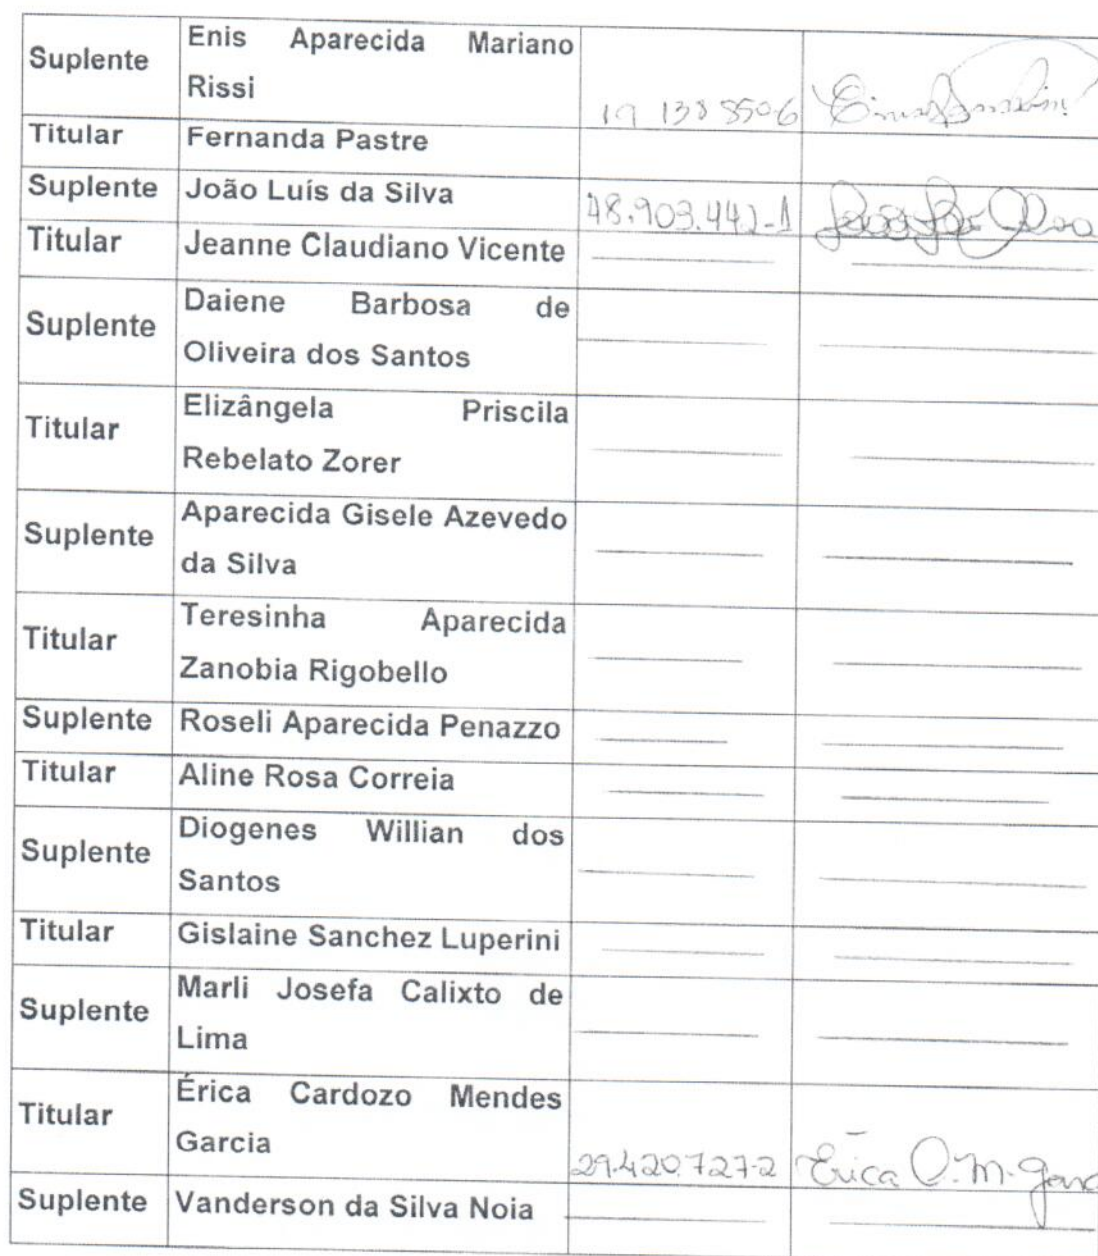 Suplente
Enis Aparecida Mariano
Rissi
19 138 550-6
Titular
Fernanda Pastre
Suplente
João Luís da Silva
48.903.442-1
Titular
Jeanne Claudiano Vicente
Suplente
Daiene Barbosa de
Oliveira dos Santos
Titular
Elizângela Priscila
Rebelato Zorer
Suplente
Aparecida Gisele Azevedo
da Silva
Titular
Teresinha Aparecida
Zanobia Rigobello
Suplente
Roseli Aparecida Penazzo
Titular
Aline Rosa Correia
Suplente
Diogenes Willian dos
Santos
Titular
Gislaine Sanchez Luperini
Suplente
Marli Josefa Calixto de
Lima
Titular
Érica Cardozo Mendes
Garcia
29.420.727-2 Érica C. M. Garc
Suplente
Vanderson da Silva Noia